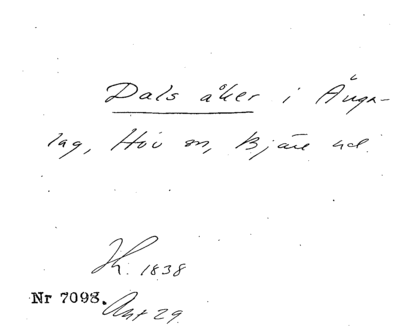 Dals åker i Ängs-
lag, Hov sn, Bjäre hd.
H. 1838
Nr 7098.
Ant 29.